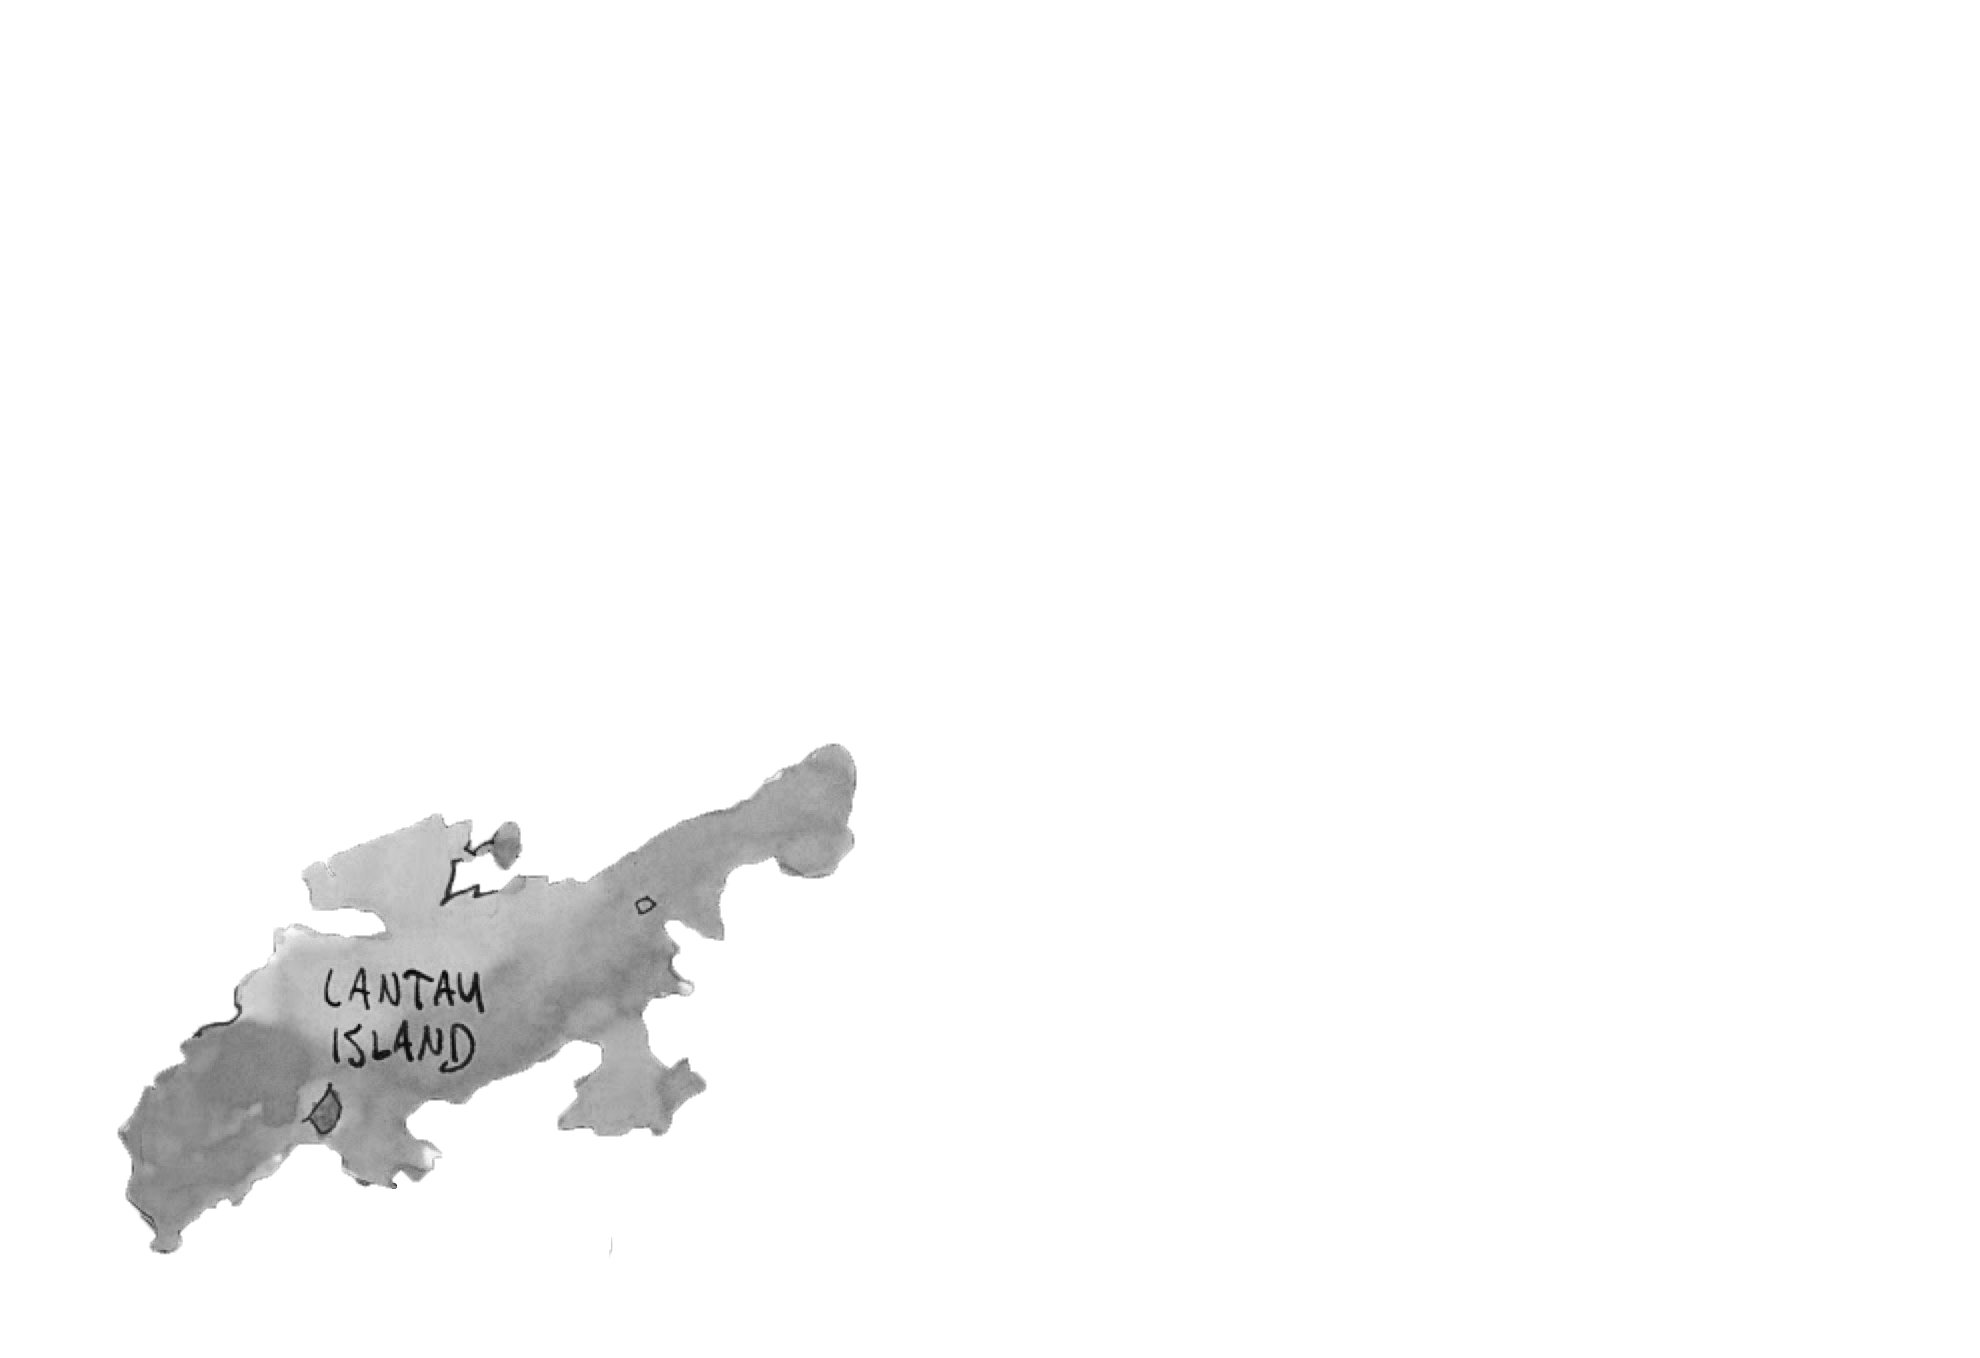 LANTAU
ISLAND